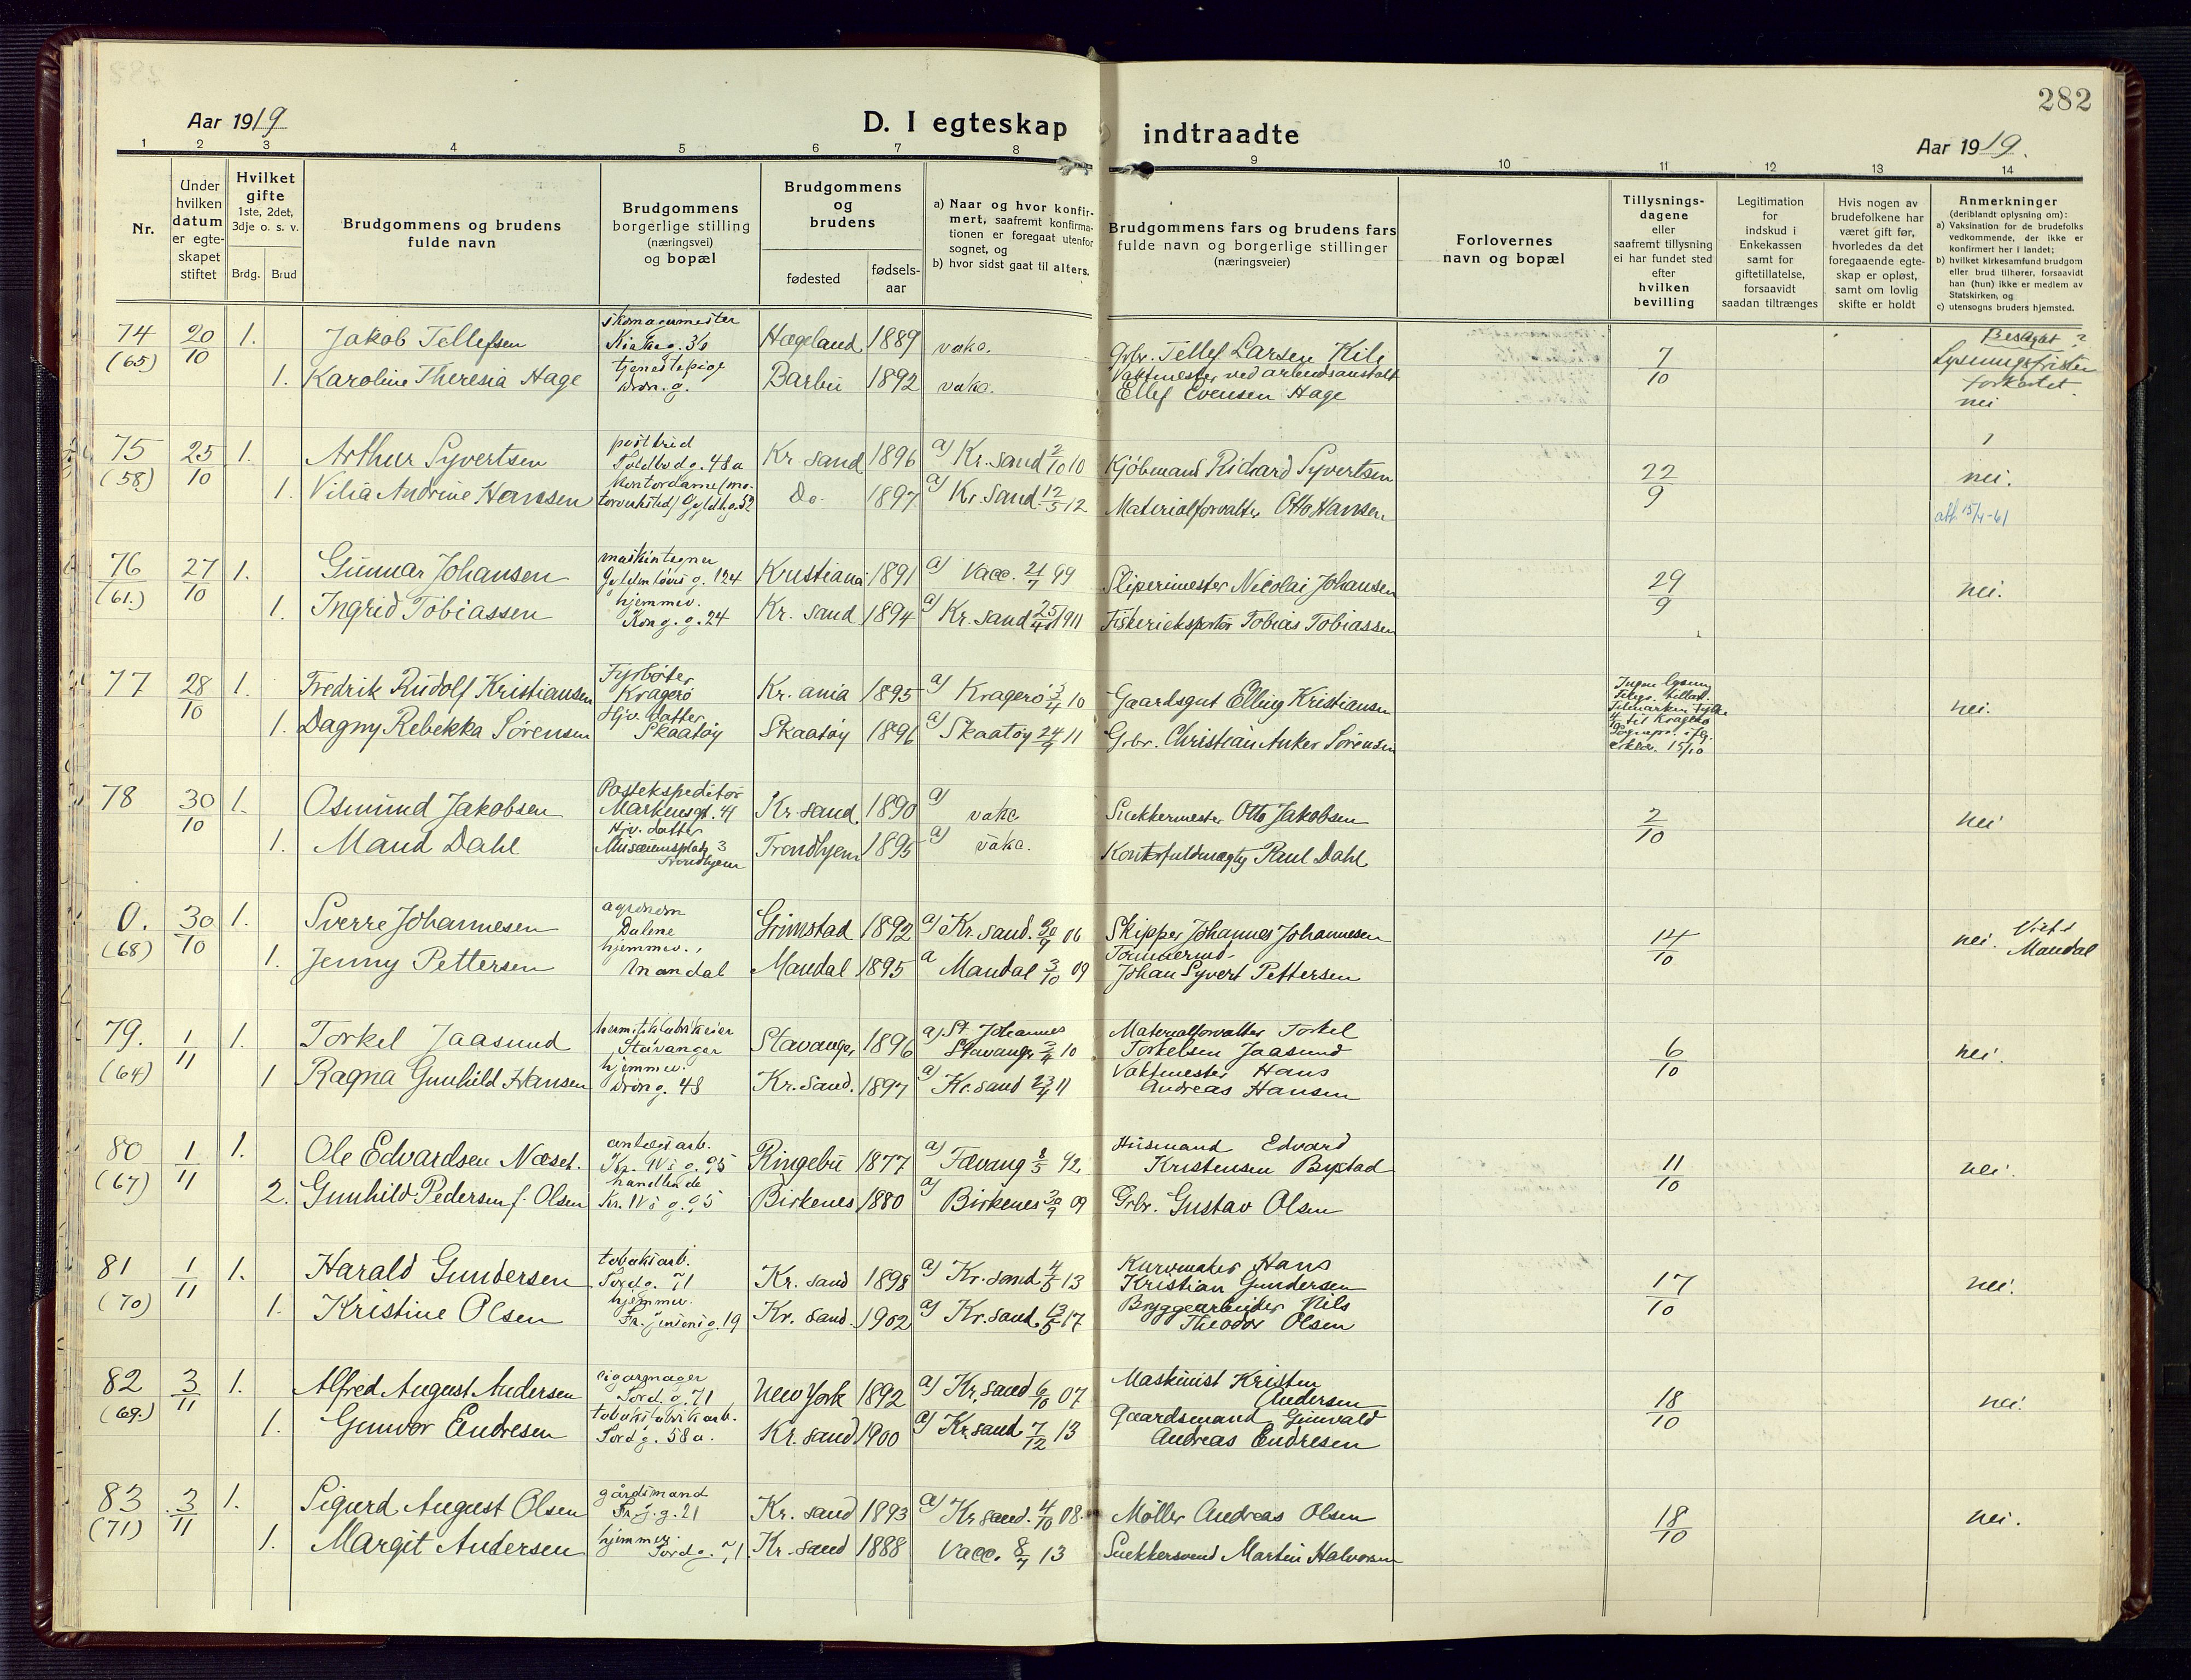 282
Aar 1919
D. I egteskap indtraadte
Aar 1919.
1 2 3 4 5 6 7 8 9 10 11 12 13 14
Nr.
Under hvilken datum er egte-skapet stiftet
Hvilket gifte
1ste, 2det, 3dje o. s. v.
Brdg. Brud
Brudgommens og brudens fulde navn
Brudgommens borgerlige stilling (næringsvei) og bopæl
Brudgommens og brudens
fødested
fødsels-aar
a) Naar og hvor konfir-mert, saafremt konfirma-tionen er foregaat utenfor sognet, og
b) hvor sidst gaat til alters.
Brudgommens fars og brudens fars fulde navn og borgerlige stillinger (næringsveier)
Forlovernes navn og bopæl
Tillysnings-dagene eller saafremt tillysning ei har fundet sted efter hvilken bevilling
Legitimation for indskud i Enkekassen samt for giftetillatelse, forsaavidt saadan tiltrænges
Hvis nogen av brudefolkene har været gift før, hvorledes da det foregaaende egte-skap er opløst, samt om lovlig skifte er holdt
Anmerkninger
(deriblandt oplysning om):
a) Vaksination for de brudefolks vedkommende, der ikke er konfirmert her i landet;
b) hvilket kirkesamfund brudgom eller brud tilhører, forsaavidt han (hun) ikke er medlem av Statskirken, og
c) utensogns bruders hjemsted.
74 20/10 1. Jakob Tellefsen skomagermester Kirkeg. 36 Hægeland 1889 vaks. Grbr. Tellef Larsen Kile 7/10
(65) 1. Karoline Theresia Hage tjenestepige Dron. g. Barbu 1892 vaks. Vaktmester ved arbeidsanstalt Ellef Evensen Hage Lysningsfristen forkortet nei
75 25/10 1. Arthur Syvertsen postbud Toldbodg. 48a Kr. sand 1896 a) Kr. sand 2/10 10 Kjøbmand Richard Syvertsen 22/9 nei.
(58) 1. Vilia Andrine Hansen Kontordame Gyldlg. 52 Do. 1897 a) Kr. sand 12/5 12 Materialforvalter Otto Hansen att 15/4-61
76 27/10 1. Gunnar Johansen maskintegner Gyldenløves g. 124 Kristiania 1891 a) Vacc. 21/7 99 Sliperimester Nicolai Johansen 29/9 nei.
(61.) 1. Ingrid Tobiassen hjemmev. Kong. g. 24 Kr. sand 1894 a) Kr. sand 25/4 1911 Fiskerieksportør Tobias Tobiassen
77 28/10 1. Fredrik Rudolf Kristiansen Fyrbøter Kragerø Kr. ania 1895 a) Kragerø 3/4 10 Gaardsgut Elling Kristiansen nei.
1. Dagny Rebekka Sørensen Hjv. datter Skaatøy Skaatøy 1896 a) Skaatøy 24/9 11 Grbr. Christian Anker Sørensen 15/10
78 30/10 1. Osmund Jakobsen Postekspeditør Markensgt. 41 Kr. sand 1890 a) vaks Snekkermester Otto Jakobsen 2/10 nei
1. Maud Dahl Hjv. datter Museumsplads 3 Trondhjem Trondhjem 1895 a) vaks. Kontorfuldmægtig Paul Dahl
0. 30/10 1. Sverre Johannesen agronom Dalene Grimstad 1892 a) Kr. sand. 30/9 06 Skipper Johannes Johannesen 14/10 nei. Viet i Mandal
(68) 1. Jenny Pettersen hjemmev. Mandal Mandal 1895 a Mandal 3/10 09 Tømmermd. Johan Syvert Pettersen
79. 1/11 1. Torkel Jaasund hermetikfabrikeier Stavanger Stavanger 1896 a) St. Johannes Stavanger 3/4 10 Materialforvalter Torkel Torkelsen Jaasund 6/10 nei.
(64) 1 Ragna Gunhild Hansen hjemmev. Dron g. 48 Kr. Sand. 1897 a) Kr. sand 23/4 11 Vaktmester Hans Andreas Hansen
80 1/11 1. Ole Edvardsen Næset. anlegsarb. Kr. IVs g. 95 Ringebu 1877 a) Fævang 8/5 92 Husmand Edvard Kristensen Bystad 11/10 nei.
(67) 2. Gunhild Pedersen f. Olsen handlende Kr. IVs g. 95 Birkenes 1880 a) Birkenes 30/9 09 Grbr. Gustav Olsen
81 1/11 1. Harald Gundersen tobaksarb. Tordg. 71 Kr. sand 1898 a) Kr. sand 4/5 13 Kurvmaker Hans Kristian Gundersen 17/10 nei.
(70) 1. Kristine Olsen hjemmev. Fr. jensensg. 19 Kr. sand. 1902 a) Kr. sand 13/5 17 Bryggearbeider Nils Theodor Olsen
82 3/11 1. Alfred August Andersen sigarmager Tord. g. 71 New York 1892 a) Kr. sand 6/10 07 Maskinist Kristen Andersen 18/10 nei.
(69.) 1. Gunvor Endresen tobaksfabrikarb. Tordg. 58a. Kr. sand 1900 a) Kr. sand 7/12 13 Gaardsmand Gunvald Andreas Endresen
83 3/11 1. Sigurd August Olsen gårdsmand Fr. j. g. 21 Kr. sand 1893 a) Kr. sand. 4/10 08. Møller Andreas Olsen 18/10 nei.
(71) 1. Margit Andersen hjemmev. Tordg. 71 Kr. sand 1888 Vacc. 8/7 13 Snekkersvend Martin Halvorsen